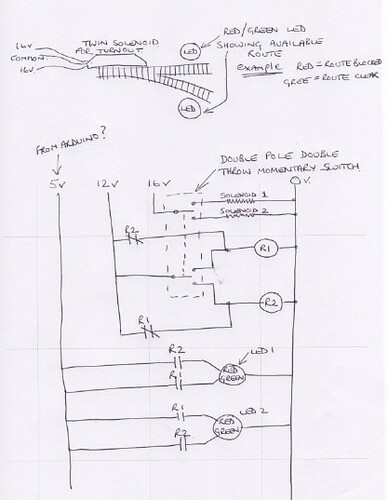 16V
COMMON.
16V
TWIN SOLENOID
FOR TURNOUT.
LED
LED
RED/GREEN LED
SHOWING AVAILABLE
ROUTE
EXAMPLE RED = ROUTE BLOCKED
GREE = ROUTE CLEAR
FROM ARDUINO?
DOUBLE POLE DOUBLE
THROW MOMENTARY SWITCH
5V
12V
16V
0V.
SOLENOID 1
SOLENOID 2
R2
R1
R2
R1
R2
R1
RED
GREEN
LED 1
R1
R2
RED
GREEN
LED 2